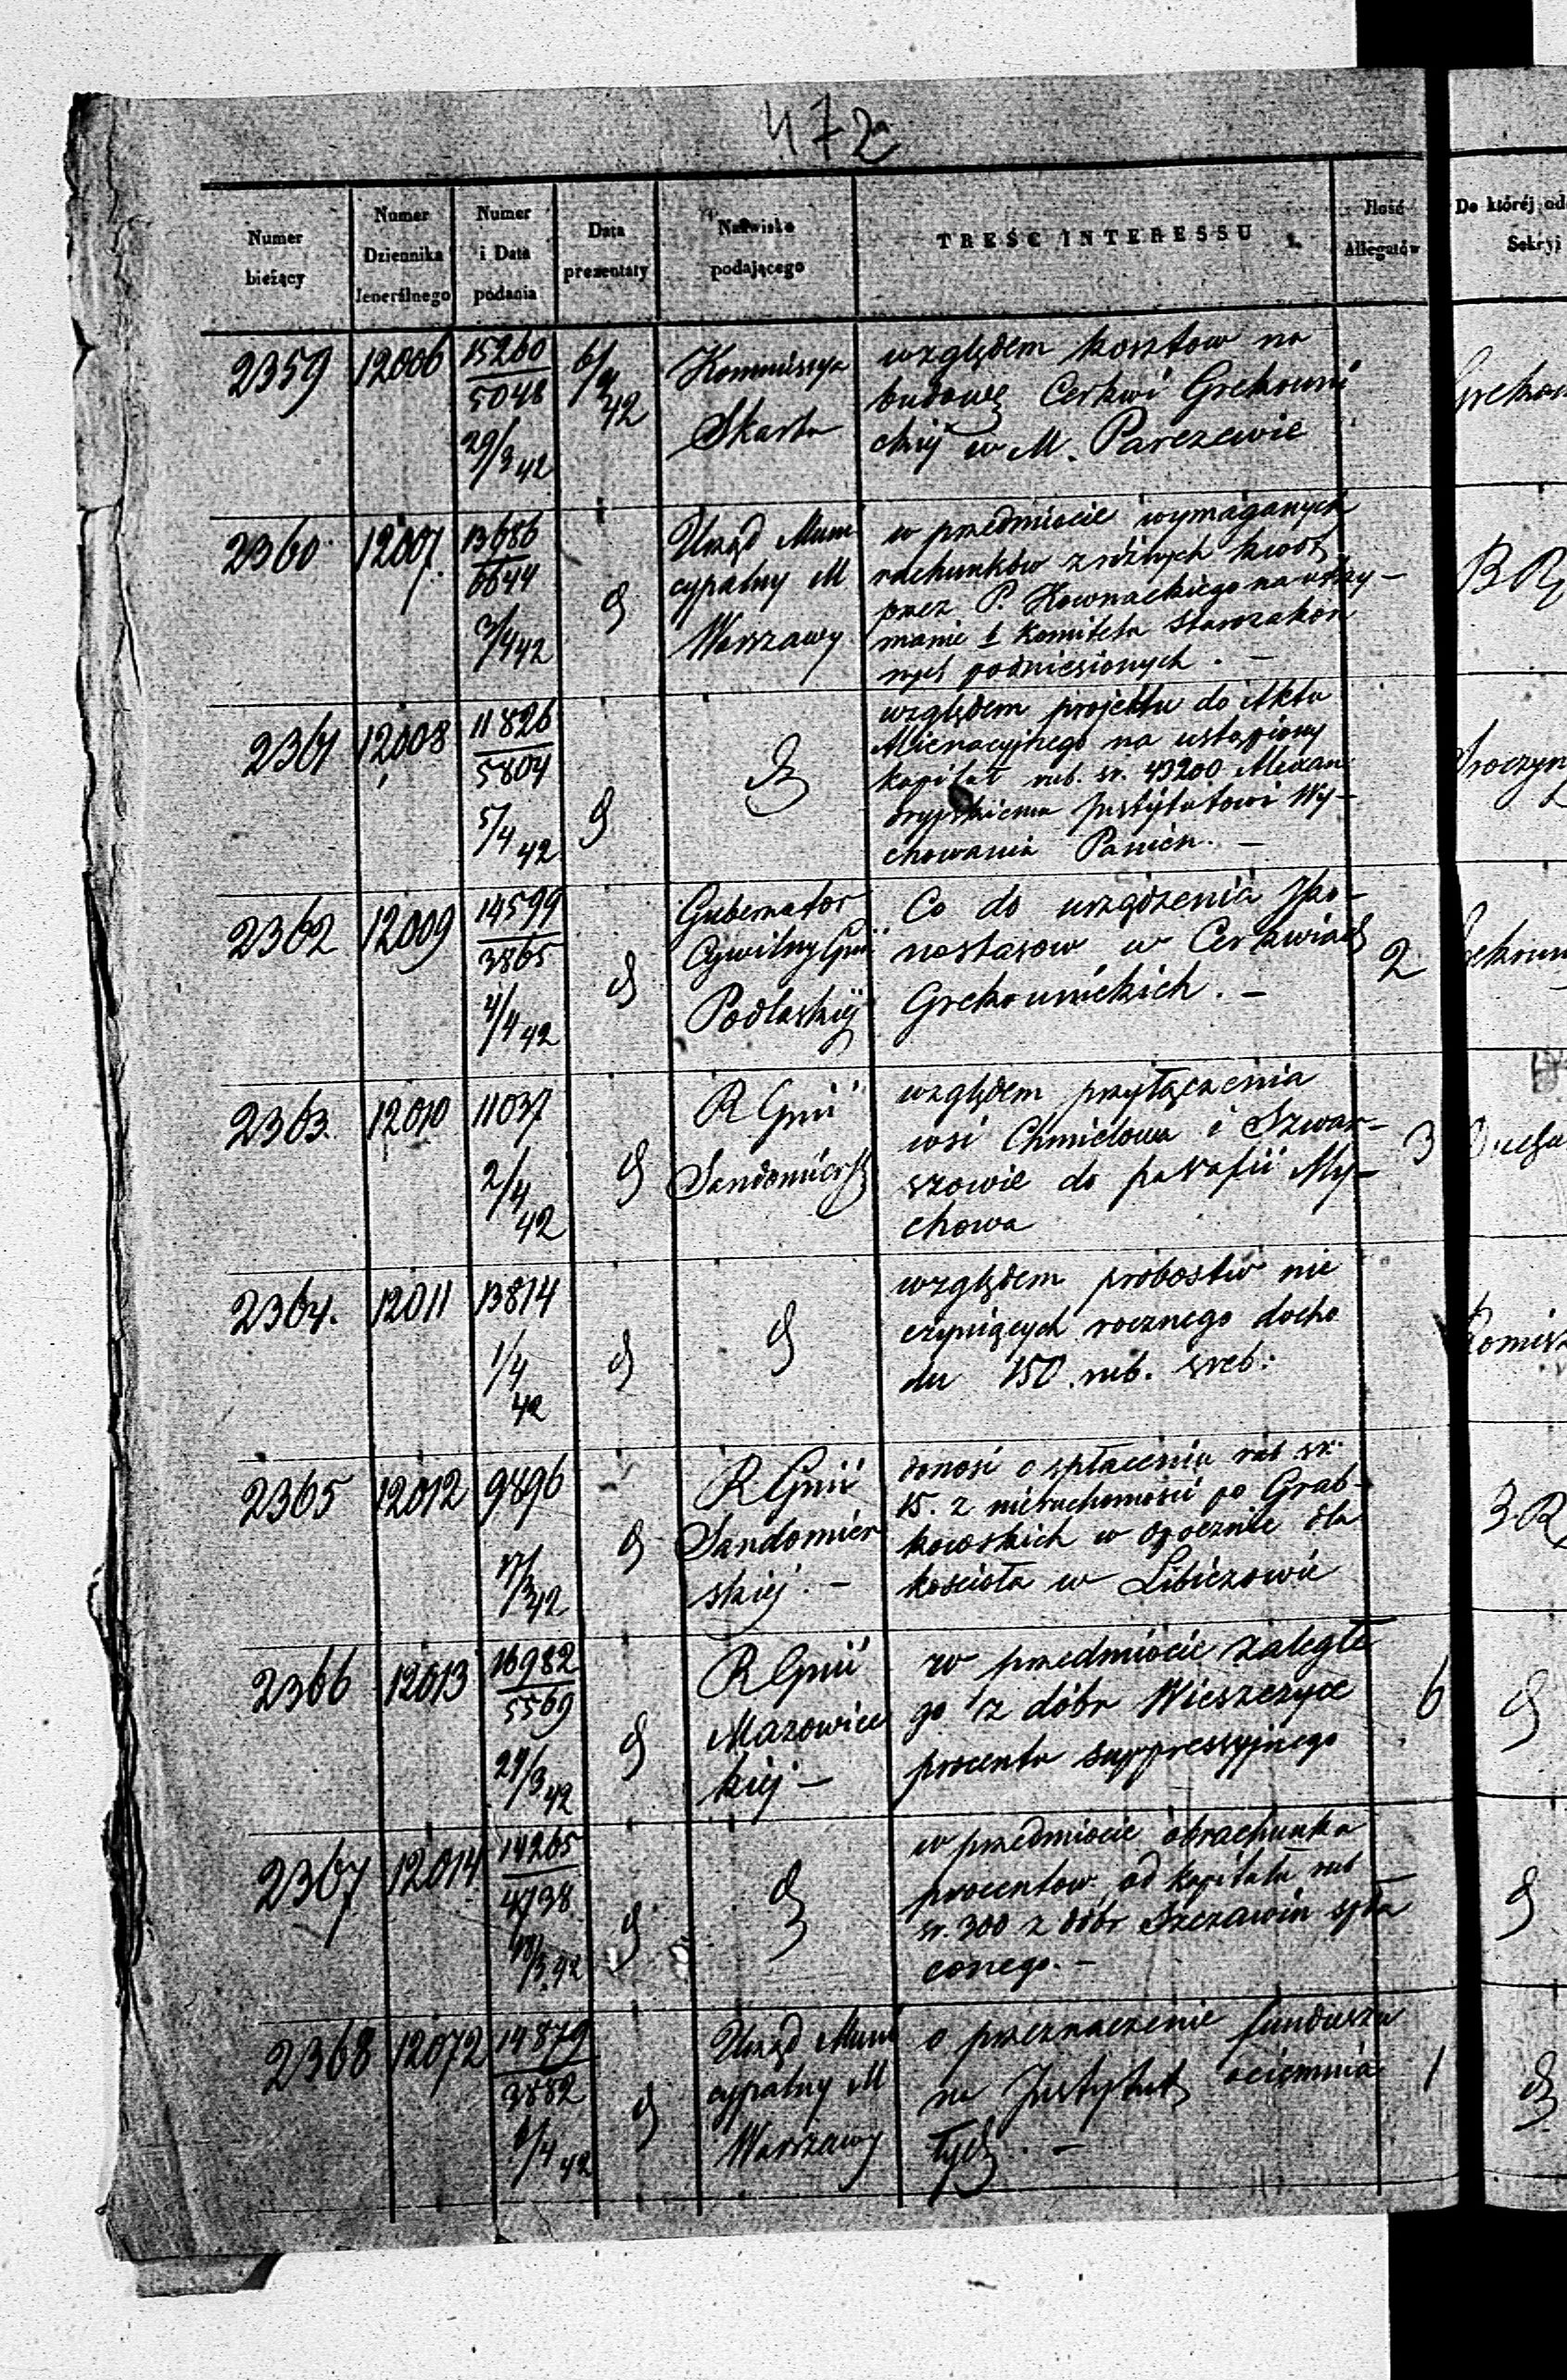 472
Numer
bieżący
Numer
Dziennika
Jenerálnego
Numer
i Data
podania
Data
prezentaty
Nazwisko
podającego
TREŚĆ INTERESSU
Ilość
Allegatów
Do któréj od
Sekcyi
2359 12006 15260
5048
29/3 42
6/4 42
Kommissya
Skarbu
względem kosztow na
budowę Cerkwi Grekouni
ckiéj w M. Parczewie
2360 12007 13686
6644
3/4 42
d
Urząd Muni
cypalny M
Warszawy
w przedmiocie wymaganych
rachunków z różnych kwot
przez P. Kownackiego na utrzy-
manie b Komitetu Starozakon
nych podniesionych. -
2361 12008 11826
5804
5/4 42
d
d
względem projektu do Aktu
Alienacyjnego na ustąpiony
kapitał rub. sr. 43200 Alexan
dryjskiemu Instytutowi Wy-
chowania Panien. -
2362 12009 14599
3865
4/4 42
d
Gubernator
Cywilny Gnii
Podlaskiéj
Co do urządzenia Iko-
nostasow w Cerkwiach
Grekounickich. -
2
2363. 12010 11037
2/4 42
d
R Gnii
Sandomiersk
względem przyłączenia
wsi Chmielowa i Szwar-
szowic do parafii My-
chowa
3
2364. 12011 13814
1/4 42
d
d
względem probostw nie
czyniących rocznego docho
du 150 rub. sreb:
2365 12012 9896
17/3 42
d
R Gnii
Sandomier
skiej. -
donosi o spłaceniu rub sr:
15. z nieruchomości po Grab-
kowskich w Opocznie dla
kościoła w Libiszowie
3.R
2366 12013 16982
5569
29/3 42
d
R Gnii
Mazowiec
kiej -
w przedmiocie zaległe
go z dóbr Wieszczyce
procentu suppressyjnego
6
d
2367 12014 14265
4738
18/3 42
d
d
w przedmiocie obrachunku
procentow od kapitału rub
sr. 300 z dóbr Szczawin spła
conego. -
d
2368 12072 14879
3882
6/4 42
d
Urząd Muni
cypalny M
Warszawy
o przeznaczenie funduszu
na Instytut ociemnia
łych. -
1
d